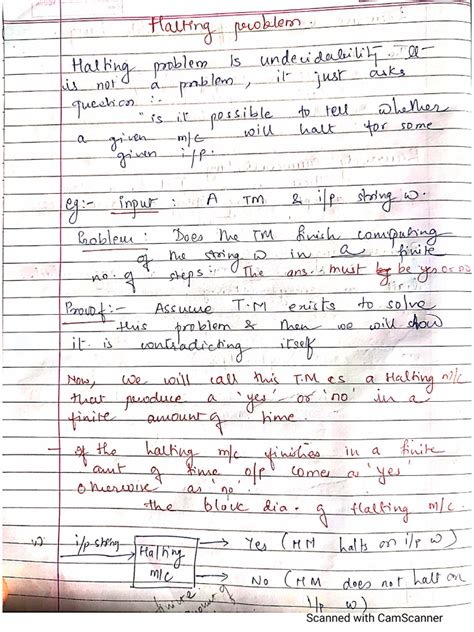 Halting problem
Halting problem is undecidability. It
is not a problem, it just asks
question :-
"is it possible to tell whether
a given m/c will halt for some
given i/p.
eg:- Input : A TM & i/p string w.
Problem : Does the TM finish computing
of the string w in a finite
no. of steps. The ans. must be yes or no
Proof :- Assume T.M exists to solve
this problem & then we will show
it is contradicting itself
Now, we will call this T.M as a Halting m/c
that produce a 'yes' or 'no' in a
finite amount of time.
If the halting m/c finishes in a finite
amt of time o/p comes as 'yes'
otherwise as 'no'.
the block dia. of Halting m/c.
i/p string
Halting
m/c
Yes (HM halts on i/p w)
No (HM does not halt on
i/p w)
finite
amount of
Scanned with CamScanner